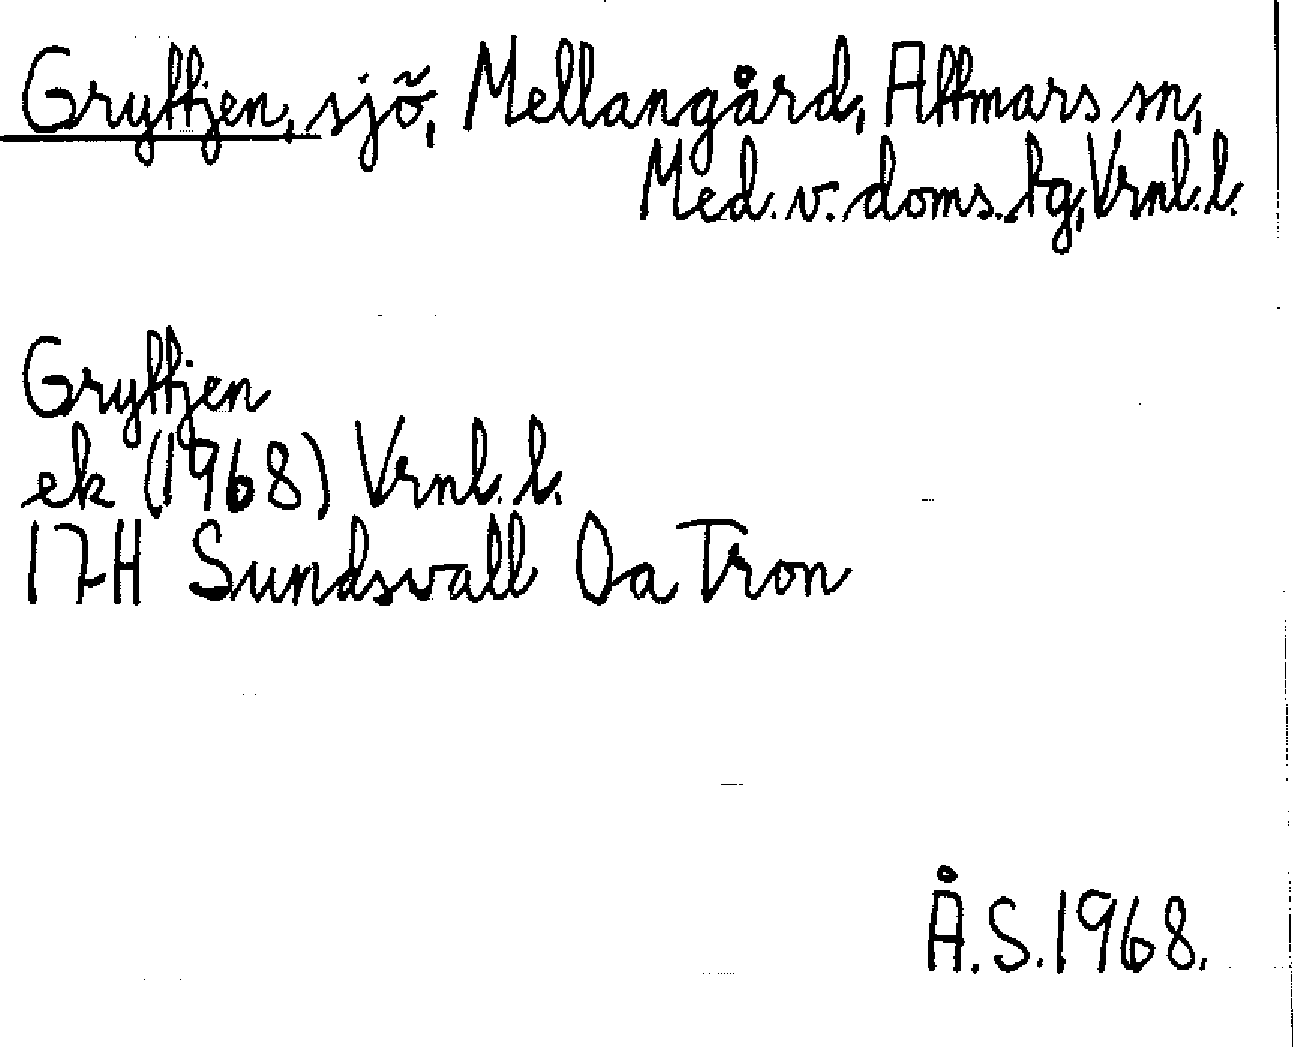 Gryttjen, sjö, Mellangård, Attmars sn,
Med. v. doms. tg, Vrnl. l.
Gryttjen
ek (1968) Vrnl. l.
17H Sundsvall Oa Tron
Å.S. 1968.